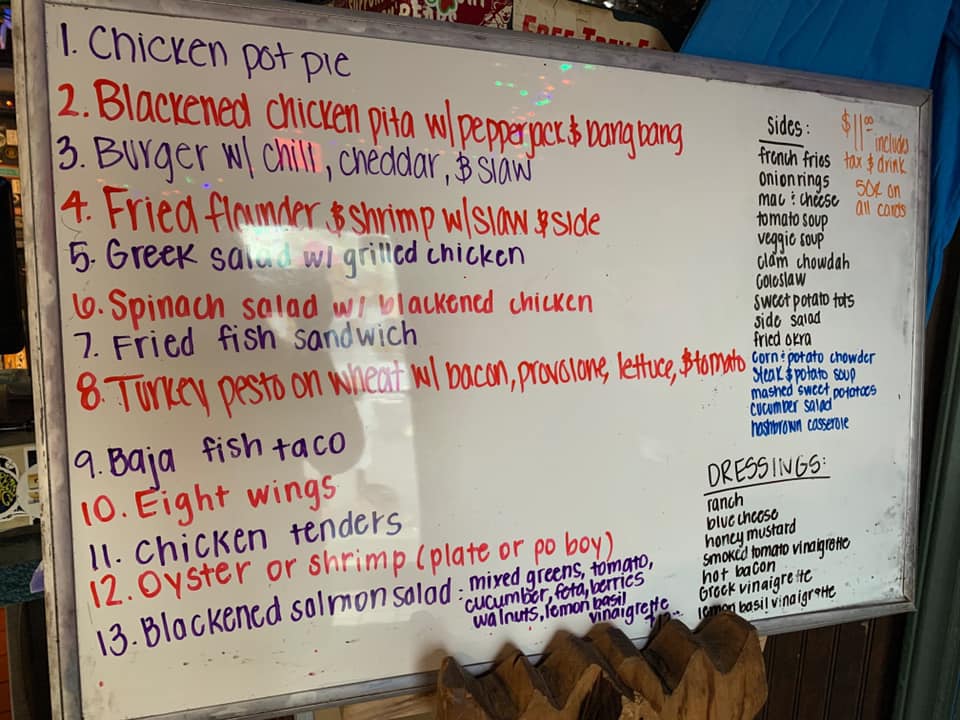 FREE TREE
1. Chicken pot pie
2. Blackened chicken pita w/ pepperjack & bang bang
3. Burger w/ chili, cheddar, & slaw
4. Fried flounder & shrimp w/ slaw & side
5. Greek salad w/ grilled chicken
6. Spinach salad w/ blackened chicken
7. Fried fish sandwich
8. Turkey pesto on wheat w/ bacon, provolone, lettuce, & tomato
9. Baja fish taco
10. Eight wings
11. Chicken tenders
12. Oyster or shrimp (plate or po boy)
13. Blackened salmon salad: mixed greens, tomato,
cucumber, feta, berries
walnuts, lemon basil
vinaigrette
Sides:
french fries
onion rings
mac & cheese
tomato soup
veggie soup
clam chowdah
coleslaw
sweet potato tots
side salad
fried okra
corn & potato chowder
steak & potato soup
mashed sweet potatoes
cucumber salad
hashbrown casserole
$11.00
includes
tax & drink
50¢ on
all cards
DRESSINGS:
ranch
blue cheese
honey mustard
smoked tomato vinaigrette
hot bacon
Greek vinaigrette
lemon basil vinaigrette